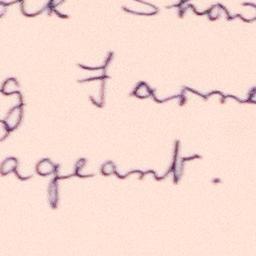 ck Show
g Fame
ageant.